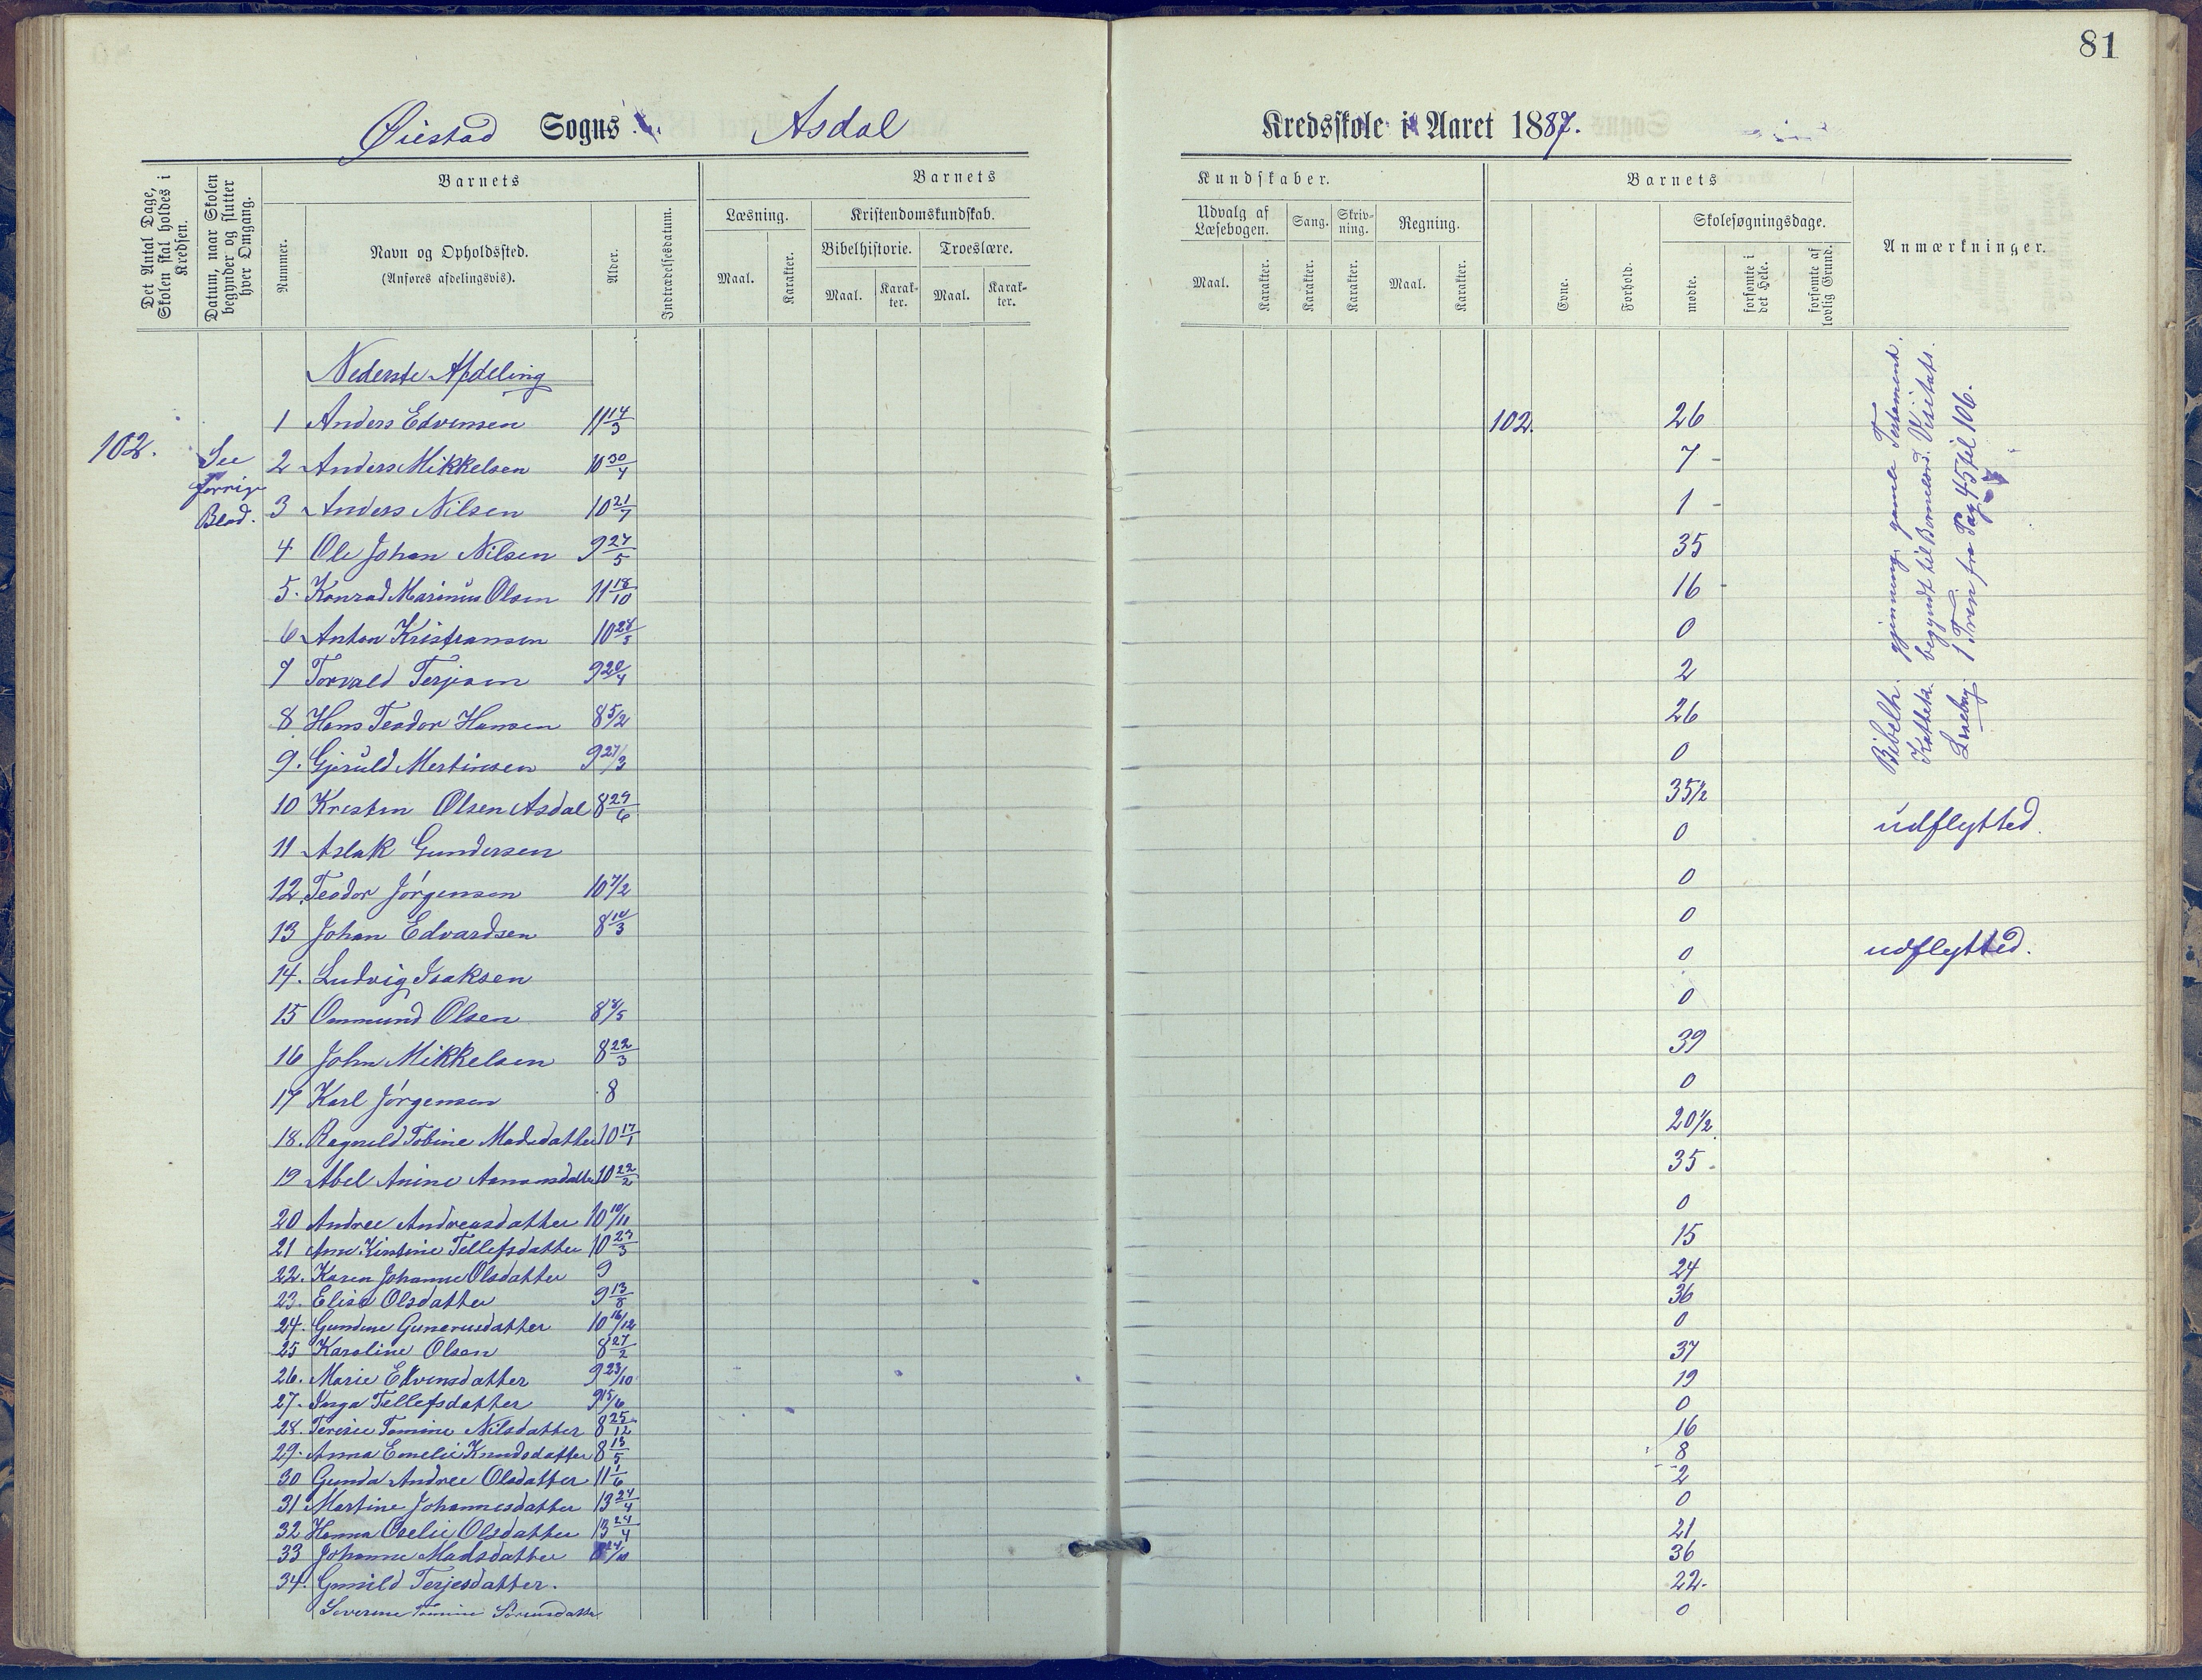 81
Øiestad Sogns Asdal Kredsskole i Aaret 1887.
Det Antal Dage, Skolen skal holdes i Kredsen.
Datum, naar Skolen begynder og slutter hver Omgang.
Barnets
Nummer.
Navn og Opholdssted.
(Anføres afdelingsvis).
Alder.
Indtrædelsesdatum.
Barnets
Læsning.
Maal.
Karakter.
Kristendomskundskab.
Bibelhistorie.
Troeslære.
Maal.
Karakter.
Maal.
Karakter.
Kundskaber.
Udvalg af Læsebogen.
Sang.
Skrivning.
Regning.
Maal.
Karakter.
Karakter.
Karakter.
Maal.
Karakter.
Barnets
Evne.
Forhold.
Skolesøgningsdage.
mødte.
forsømte i det Hele.
forsømte af lovlig Grund.
Anmærkninger.
102.
See
forrige
Blad.
Nederste Afdeling
1 Anders Edvinsen 11 14/3 102. 26
2 Anders Mikkelsen 10 30/4 7 -
3 Anders Nilsen 10 21/7 1 -
4 Ole Johan Nilsen 9 27/5 35
5. Konrad Marinius Olsen 11 18/10 16 -
6 Anton Kristiansen 10 28/5 0
7 Torvald Terjesen 9 20/4 2
8 Hans Teodor Hansen 8 5/2 26
9. Gjeruld Mertinsen 9 27/3 0
10 Kristen Olsen Asdal 8 29/6 35 1/2
11 Aslak Gundersen 0 udflytted.
12. Teodor Jørgensen 10 7/2 0
13 Johan Edvardsen 8 10/3 0
14. Ludvig Isaksen 0 udflytted.
15 Ommund Olsen 8 8/5 0
16 John Mikkelsen 8 22/3 39
17 Karl Jørgensen 8 0
18. Ragnild Tobine Madsdatter 10 17/1 20 1/2
19 Abel Anine Aamonsdatter 10 22/2 35
20 Andree Andreasdatter 10 10/11 0
21 Ane Kirstine Tellefsdatter 10 23/3 15
22. Karen Johanne Olsdatter 9 24
23. Elise Olsdatter 9 13/8 36
24. Gundine Gunerusdatter 10 16/12 0
25 Karoline Olsen 8 27/2 37
26. Marie Edvinsdatter 9 23/10 19
27. Inga Tellefsdatter 9 15/6 0
28. Teresie Tomine Nilsdatter 8 25/12 16
29. Anna Emelie Knudsdatter 8 13/5 8
30 Gunda Andree Olsdatter 11 1/6 2
31 Martine Johannesdatter 13 24/4 0
32 Hanna Oselie Olsdatter 13 24/4 21
33 Johanne Madsdatter 24/10 36
34. Gunild Terjesdatter. 22.
Severine Tomine Sørensdatter 0
Bibelh. gjennemg. gamle Testament.
Katteka begyndt til Bonneord. Visitats.
Læsebog 1 Trin fra Pag 45 til 106.